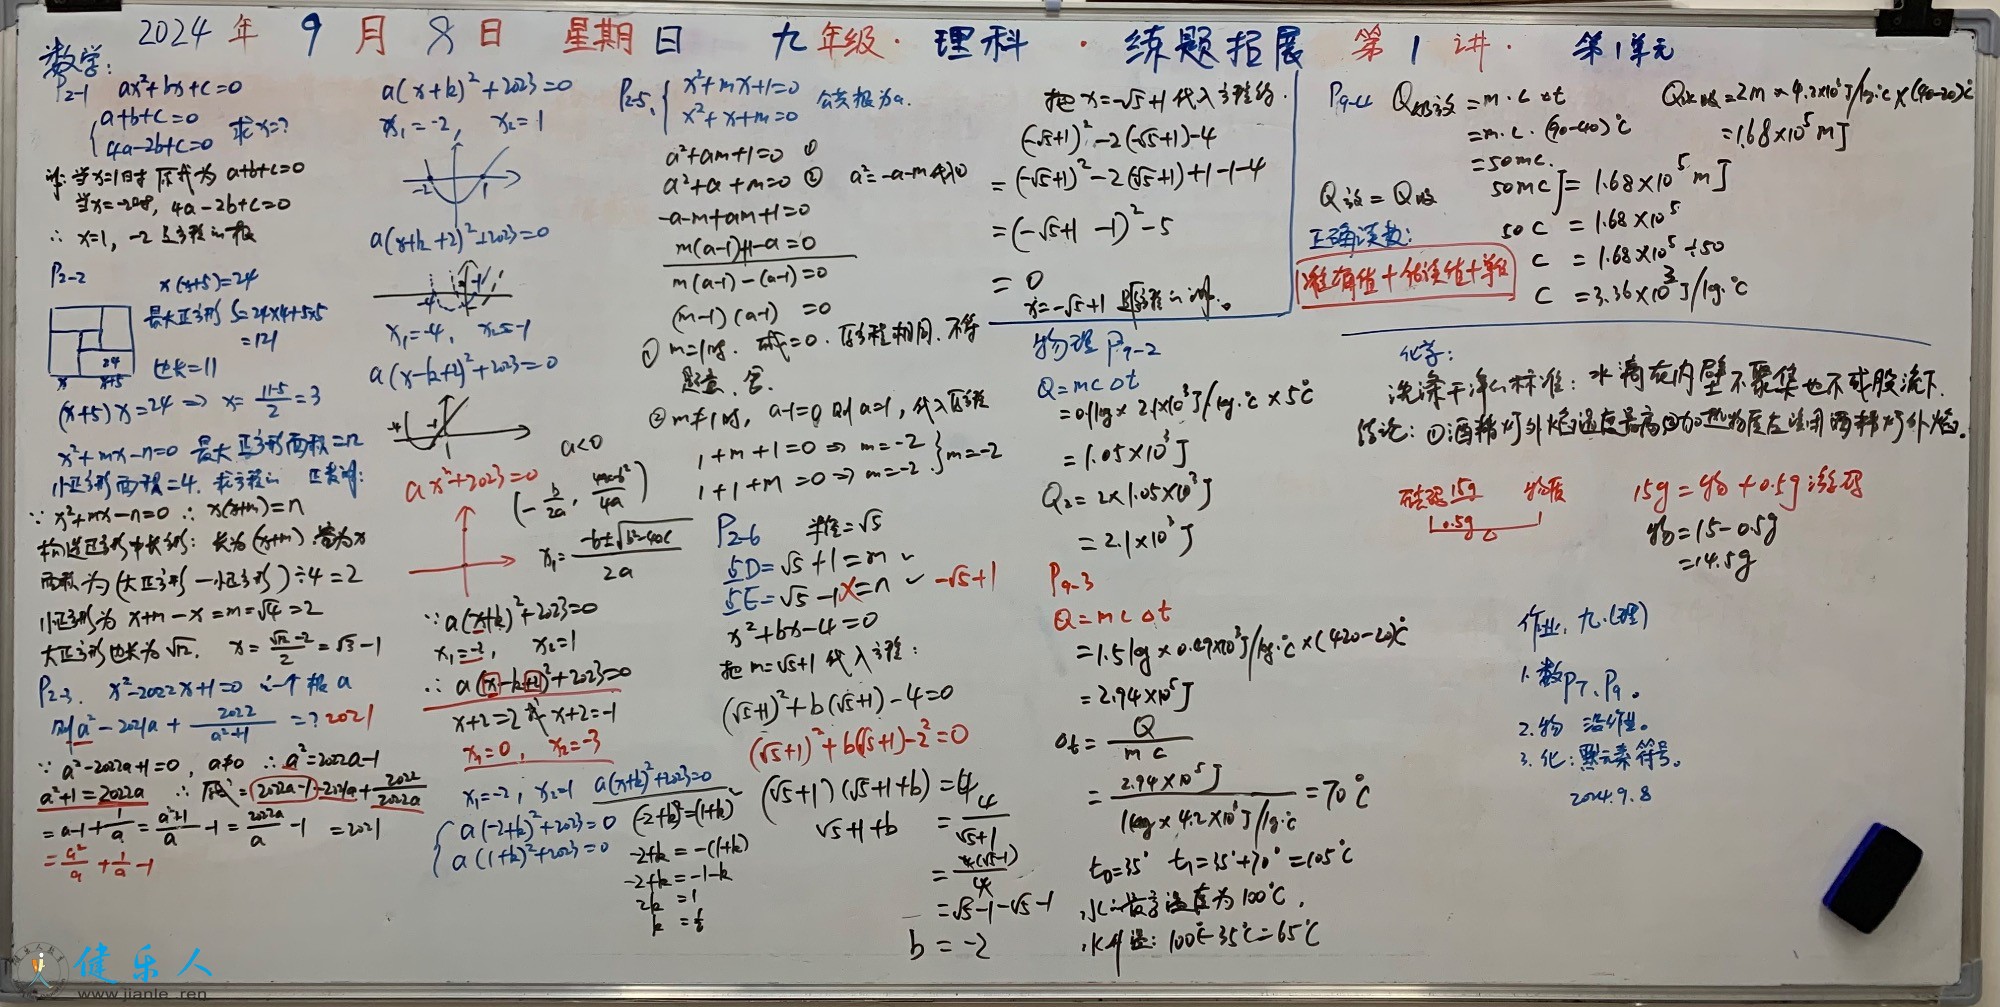 2024年9月8日 星期日 九年级·理科·练题拓展 第1讲· 第1单元
数学:
P2-1 ax²+bx+c=0
a+b+c=0
4a-2b+c=0 求x=?
当x=1时 原式为 a+b+c=0
当x=-2时, 4a-2b+c=0
∴ x=1, -2 是方程的根
P2-2 x(x+5)=24
最大正方形 S=24×4+5×5
=121
边长=11
24
x x+5
(x+5)x=24 ⇒ x=(11-5)/2=3
x²+mx-n=0 最大正方形面积=12
小正方形面积=4. 求方程的
∵ x²+mx-n=0 ∴ x(x+m)=n
长为(x+m) 宽为x
面积为(大正方形-小正方形)÷4=2
小正方形为 x+m-x=m=√4=2
大正方形边长为√12. x=(√12-2)/2=√3-1
P2-3. x²-2022x+1=0 的一个根a
则a²-2021a+2022/(a²+1)=? 2021
∵ a²-2022a+1=0, a≠0 ∴ a²=2022a-1
a²+1=2022a ∴ 原式=2022a-1-2021a+2022/2022a
=a-1+1/a=(a²+1)/a-1=2022a/a-1=2021
=a²/a+1/a-1
a(x+k)²+2023=0
x₁=-2, x₂=1
-2 1
a(x+k+2)²+2023=0
-4 -1
x₁=-4, x₂=-1
a(x-k+2)²+2023=0
ax²+2023=0
a<0
(-b/2a, (4ac-b²)/4a)
x₁=(-b±√(b²-4ac))/2a
∵ a(x+k)²+2023=0
x₁=-2, x₂=1
∴ a(x-k+2)²+2023=0
x+2=2 或 x+2=-1
x₁=0, x₂=-3
x₁=-2, x₂=1 a(x+k)²+2023=0
a(-2+k)²+2023=0
a(1+k)²+2023=0
(-2+k)²=(1+k)²
-2+k=-(1+k)
-2+k=-1-k
2k=1
k=½
P2-5. x²+mx+1=0
x²+x+m=0 公共根为a.
a²+am+1=0 ①
a²+a+m=0 ② a²=-a-m代入①
-a-m+am+1=0
m(a-1)+1-a=0
m(a-1)-(a-1)=0
(m-1)(a-1)=0
① m=1时. 原式=0. 原方程相同. 不符
题意, 舍.
② m≠1时, a-1=0 则a=1, 代入原方程
1+m+1=0 ⇒ m=-2
1+1+m=0 ⇒ m=-2 } m=-2
P2-6 半径=√5
BD=√5+1=m
BE=√5-1=n -√5+1
x²+bx-4=0
把m=√5+1代入方程:
(√5+1)²+b(√5+1)-4=0
(√5+1)²+b(√5+1)-2²=0
(√5+1)(√5+1+b)=4
√5+1+b=4/(√5+1)
=4(√5-1)/4
=√5-1-√5-1
b=-2
把x=-√5+1代入方程的.
(-√5+1)²-2(-√5+1)-4
=(-√5+1)²-2(-√5+1)+1-1-4
=(-√5+1-1)²-5
=0
x=-√5+1是原方程的解。
物理 P9-2
Q=mcΔt
=0.1kg×2.1×10³J/kg·℃×5℃
=1.05×10³J
Q₂=2×1.05×10³J
=2.1×10³J
P9-3
Q=mcΔt
=1.5kg×0.49×10³J/kg·℃×(420-20)℃
=2.94×10⁵J
Δt=Q/mc
=2.94×10⁵J/(1kg×4.2×10³J/kg·℃)=70℃
t₀=35° t₁=35°+70°=105℃
水的最高温度为100℃,
水升温: 100℃-35℃=65℃
P9-4 Q放=m·c·Δt
=m·c·(90-40)℃
=50mc.
Q水吸=2m×4.2×10³J/kg·℃×(40-20)℃
=1.68×10⁵mJ
Q放=Q吸
50mcJ=1.68×10⁵mJ
50c=1.68×10⁵
c=1.68×10⁵÷50
c=3.36×10³J/kg·℃
正确读数:
准确值+估读值+单位
化学:
洗涤干净的标准: 水滴在内壁不聚集也不成股流下.
结论: ①酒精灯外焰温度最高②加热物质应该用酒精灯外焰。
砝码15g 物质
0.5g
15g=物+0.5g游码
物=15-0.5g
=14.5g
作业: 九.(理)
1. 数P7、P9。
2. 物
3. 化: 默元素符号。
2024.9.8
健乐人
www.jianle.ren